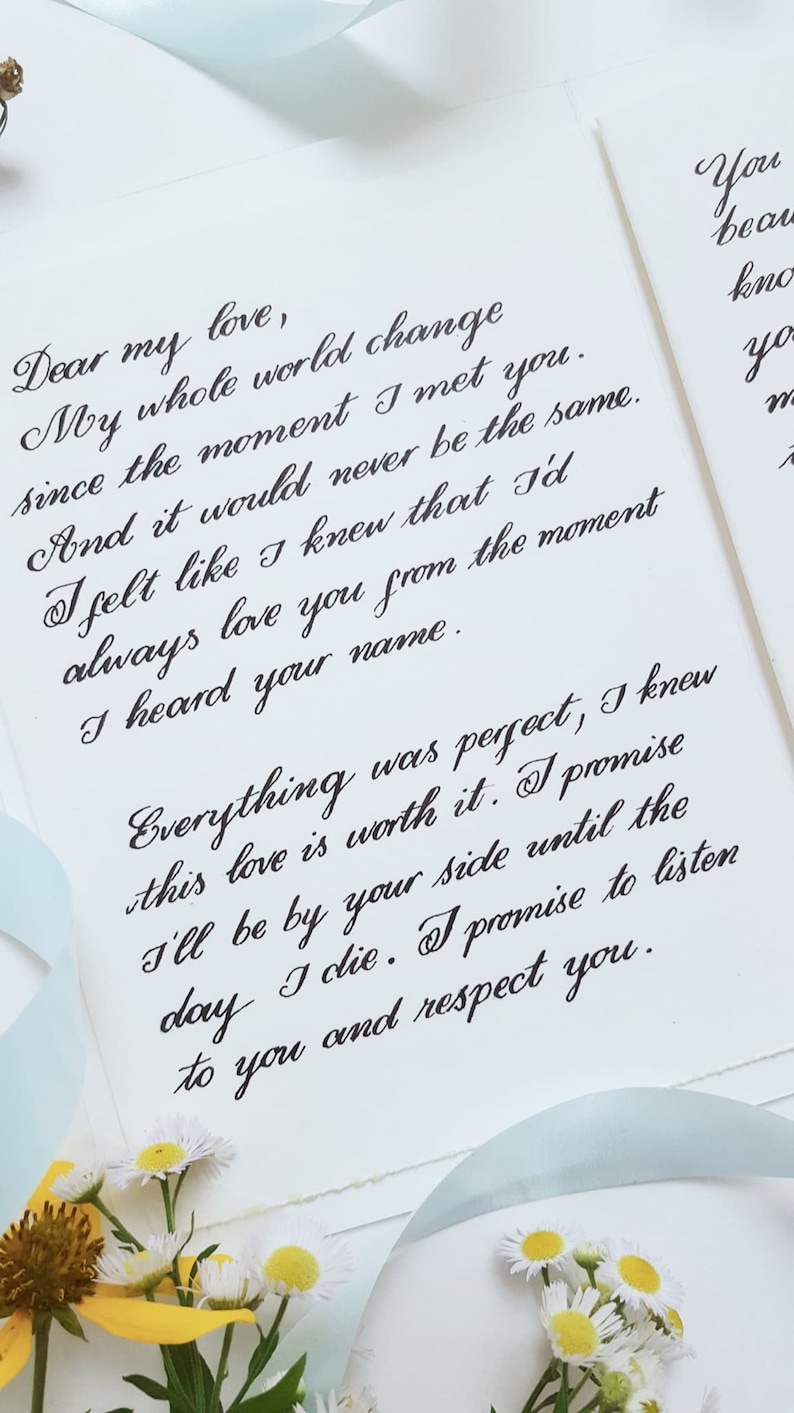 Dear my love,
My whole world change
since the moment I met you.
And it would never be the same.
I felt like I knew that I'd
always love you from the moment
I heard your name.
Everything was perfect, I knew
this love is worth it. I promise
I'll be by your side until the
day I die. I promise to listen
to you and respect you.
You